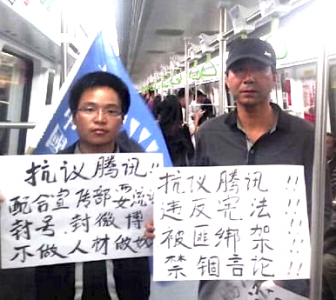 抗议腾讯!!
配合宣传部耍流
封号封微博
不做人材做奴
抗议腾讯!!
违反宪法!!
被匪绑架!!
禁锢言论!!
國